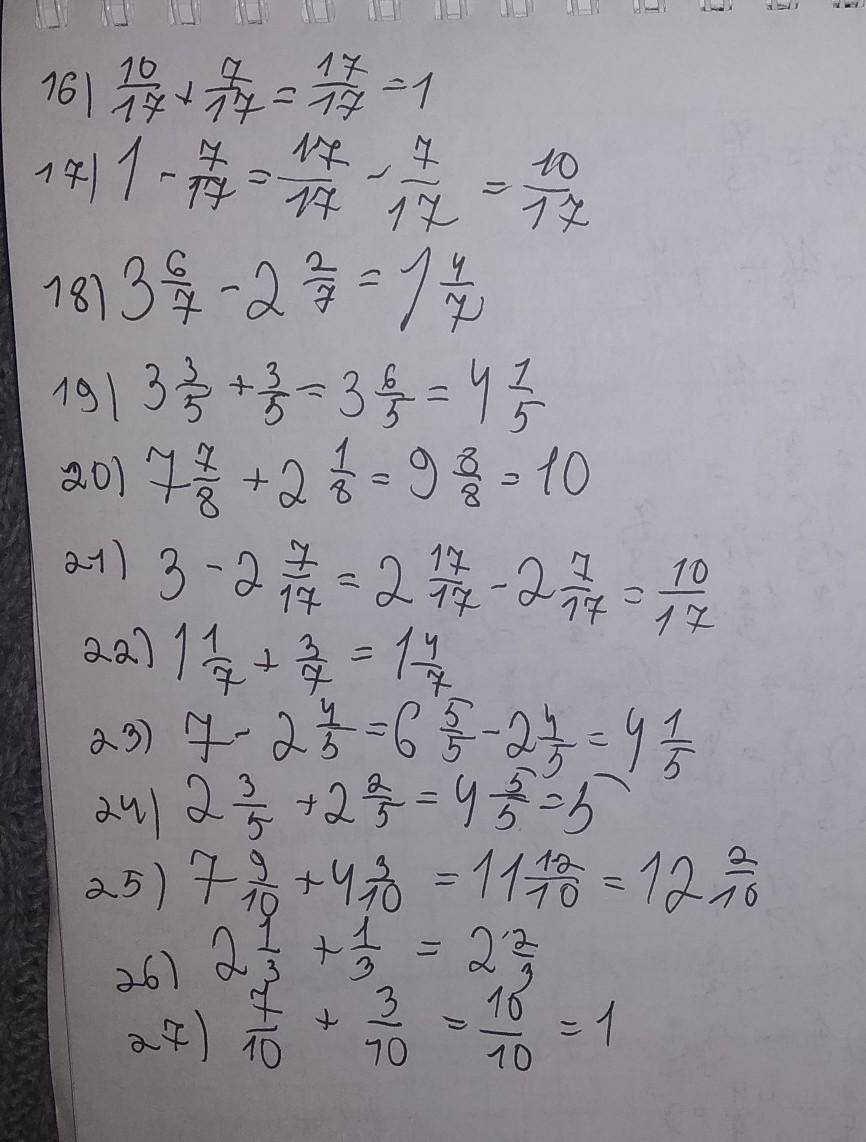 16) 10/17 + 7/17 = 17/17 = 1
17) 1 - 7/17 = 17/17 - 7/17 = 10/17
18) 3 6/7 - 2 2/7 = 1 4/7
19) 3 3/5 + 3/5 = 3 6/5 = 4 1/5
20) 7 7/8 + 2 1/8 = 9 8/8 = 10
21) 3 - 2 7/17 = 2 17/17 - 2 7/17 = 10/17
22) 1 1/7 + 3/7 = 1 4/7
23) 7 - 2 4/5 = 6 5/5 - 2 4/5 = 4 1/5
24) 2 3/5 + 2 2/5 = 4 5/5 = 5
25) 7 9/10 + 4 3/10 = 11 12/10 = 12 2/10
26) 2 1/3 + 1/3 = 2 2/3
27) 7/10 + 3/10 = 10/10 = 1